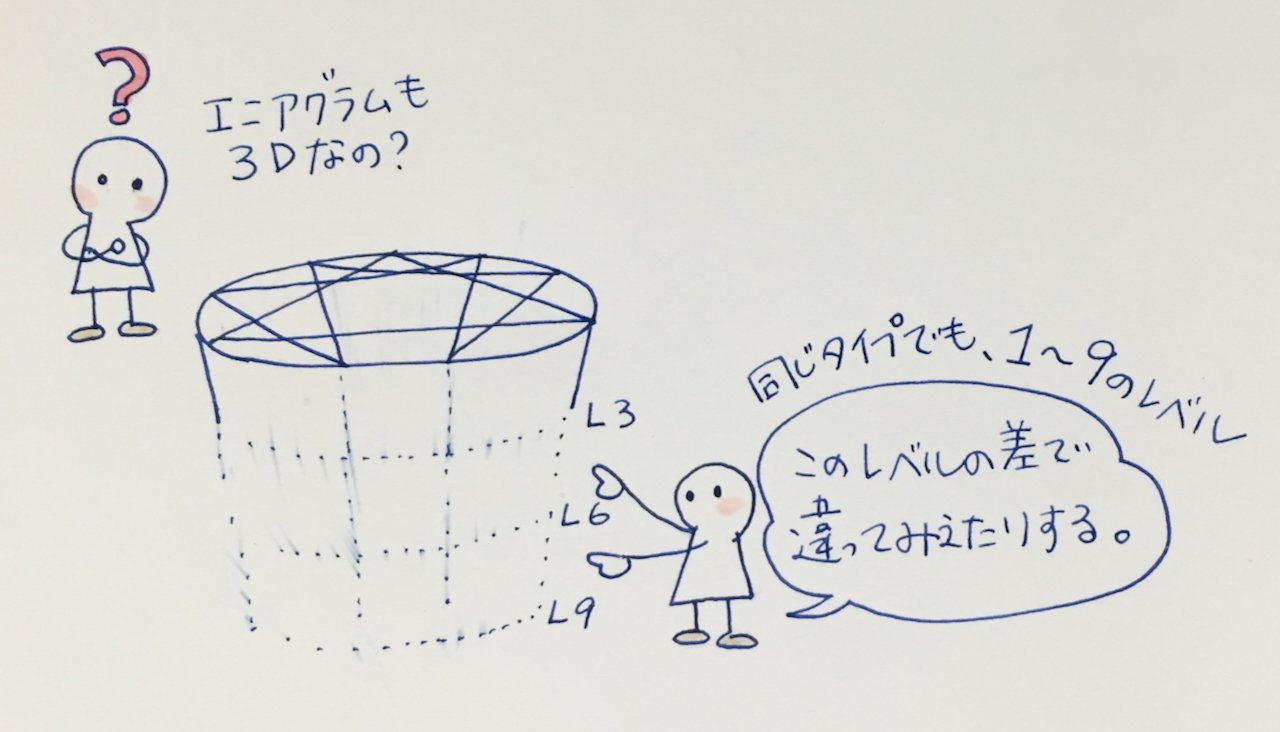 ?
エニアグラムも
3Dなの?
L3
L6
L9
同じタイプでも、1〜9のレベル
このレベルの差で
違ってみえたりする。